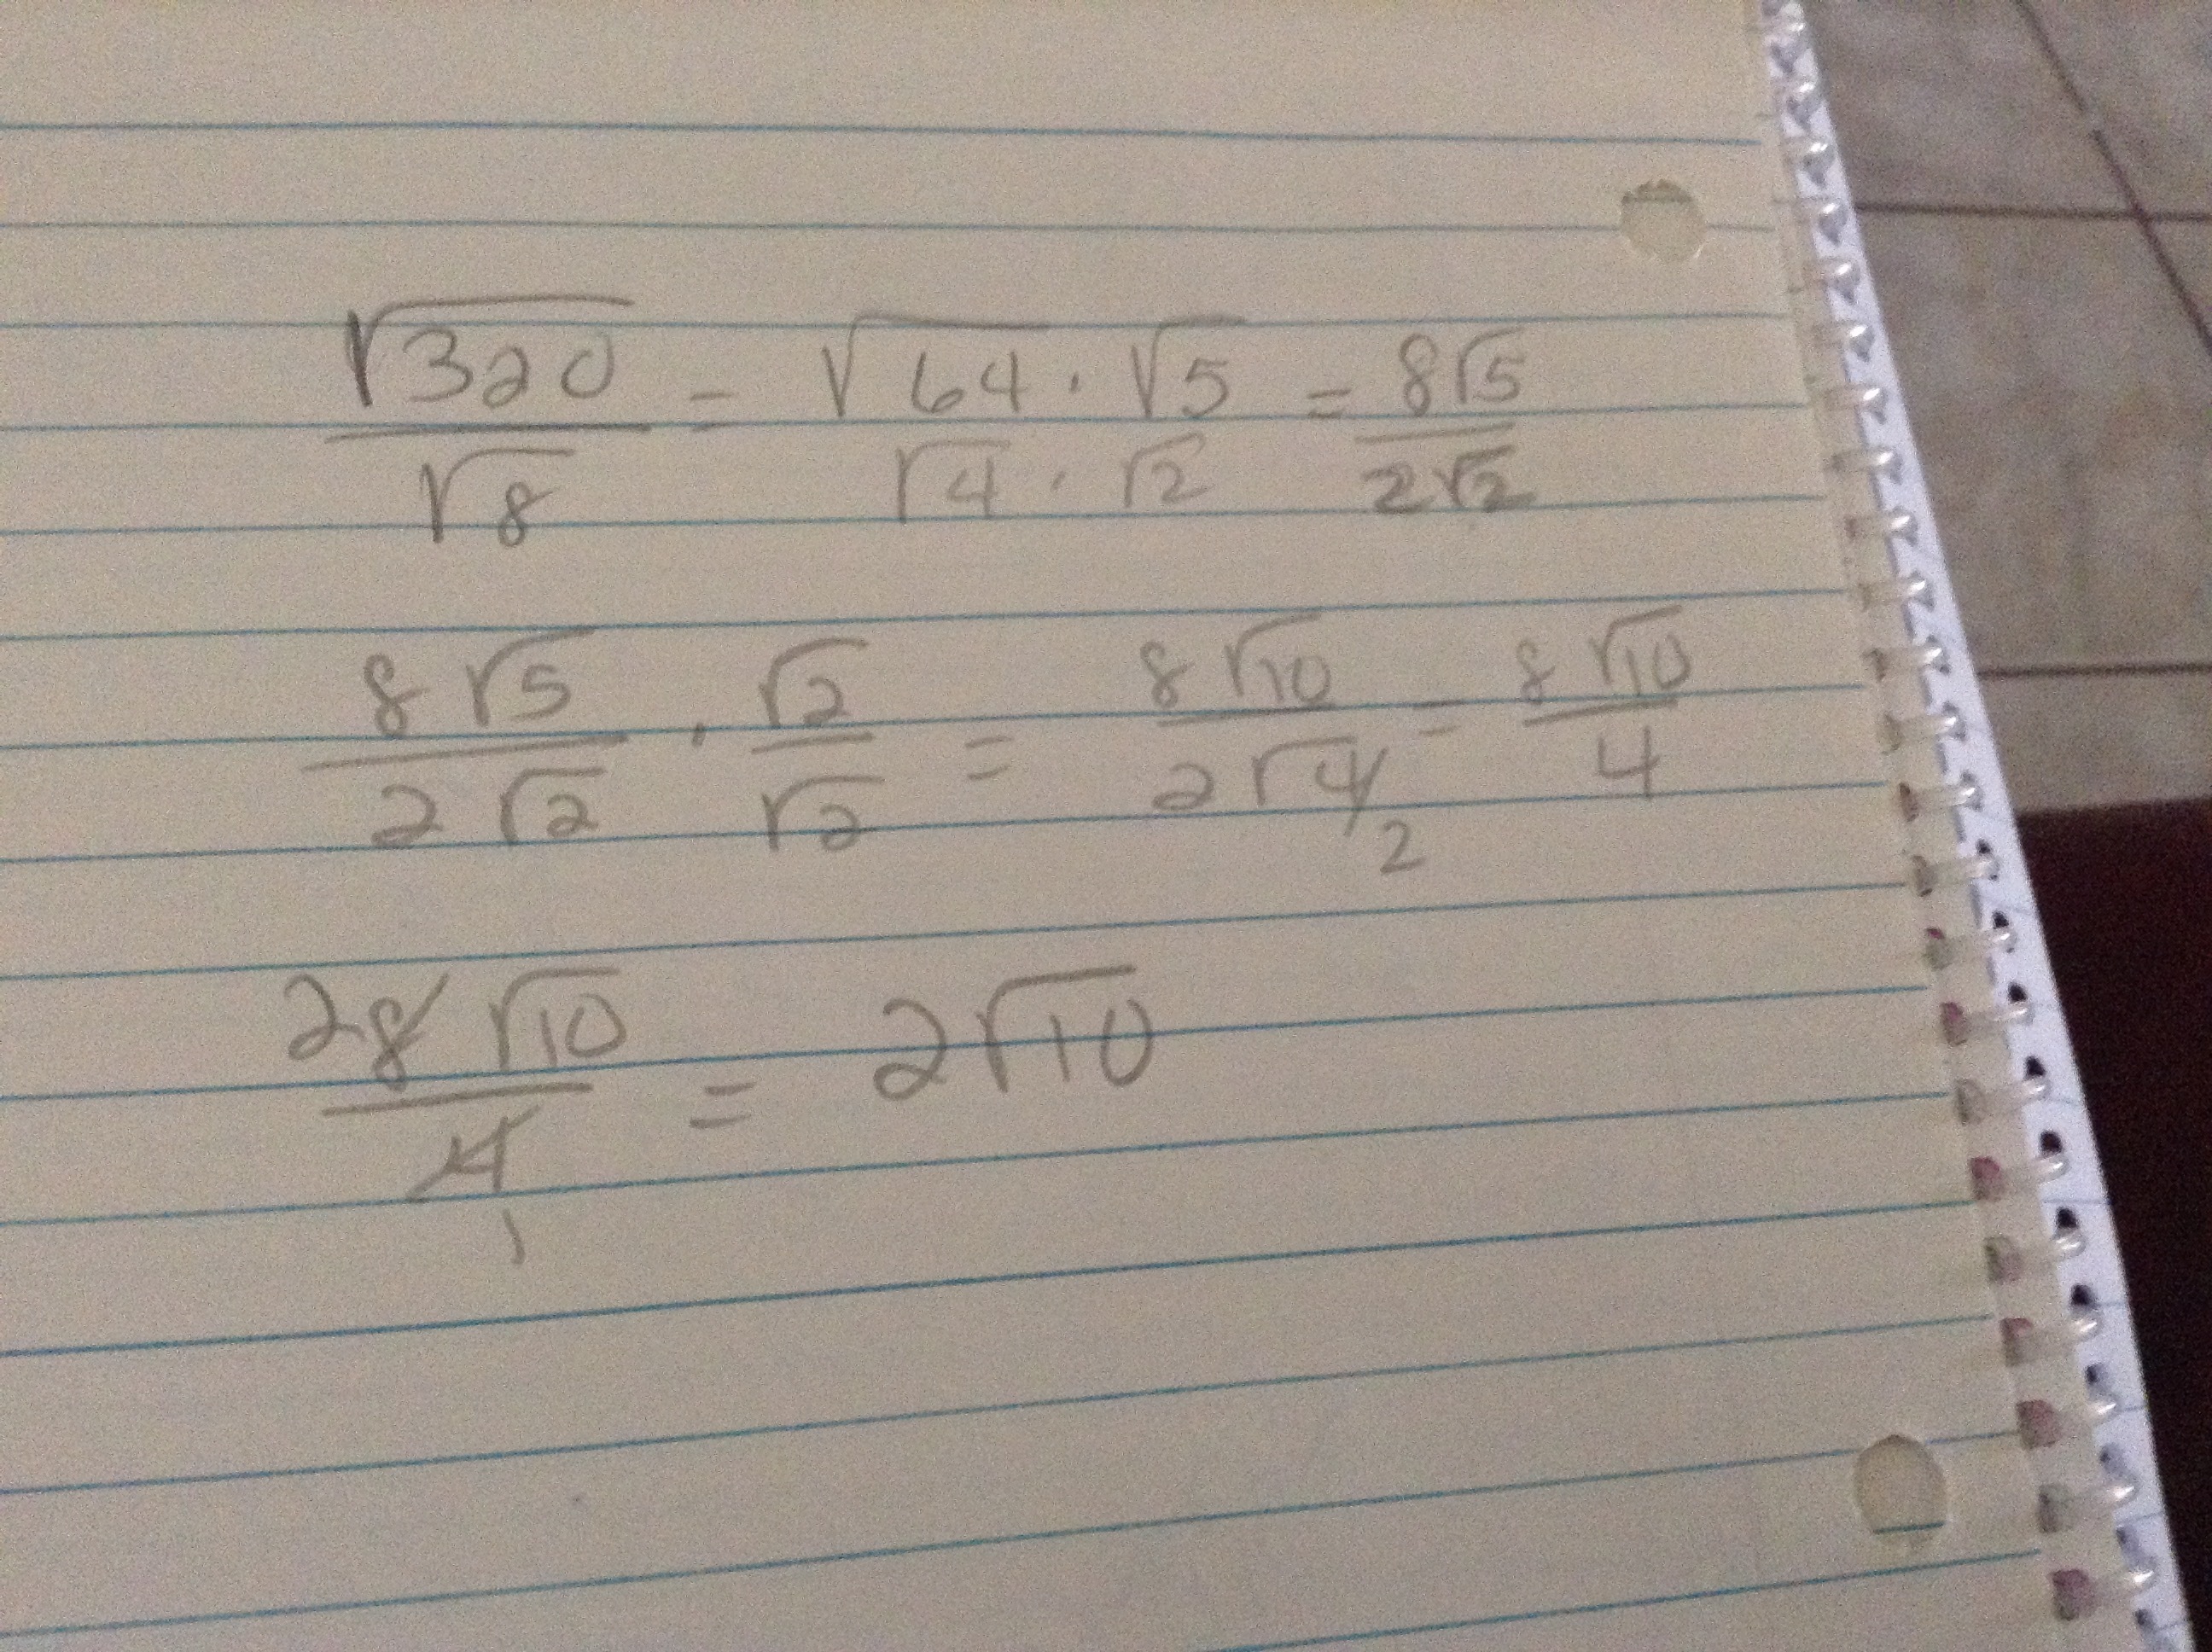 √320 / √8 = √64 · √5 / √4 · √2 = 8√5 / 2√2
8√5 / 2√2 · √2 / √2 = 8√10 / 2√4 2 = 8√10 / 4
2 8√10 / 4 1 = 2√10